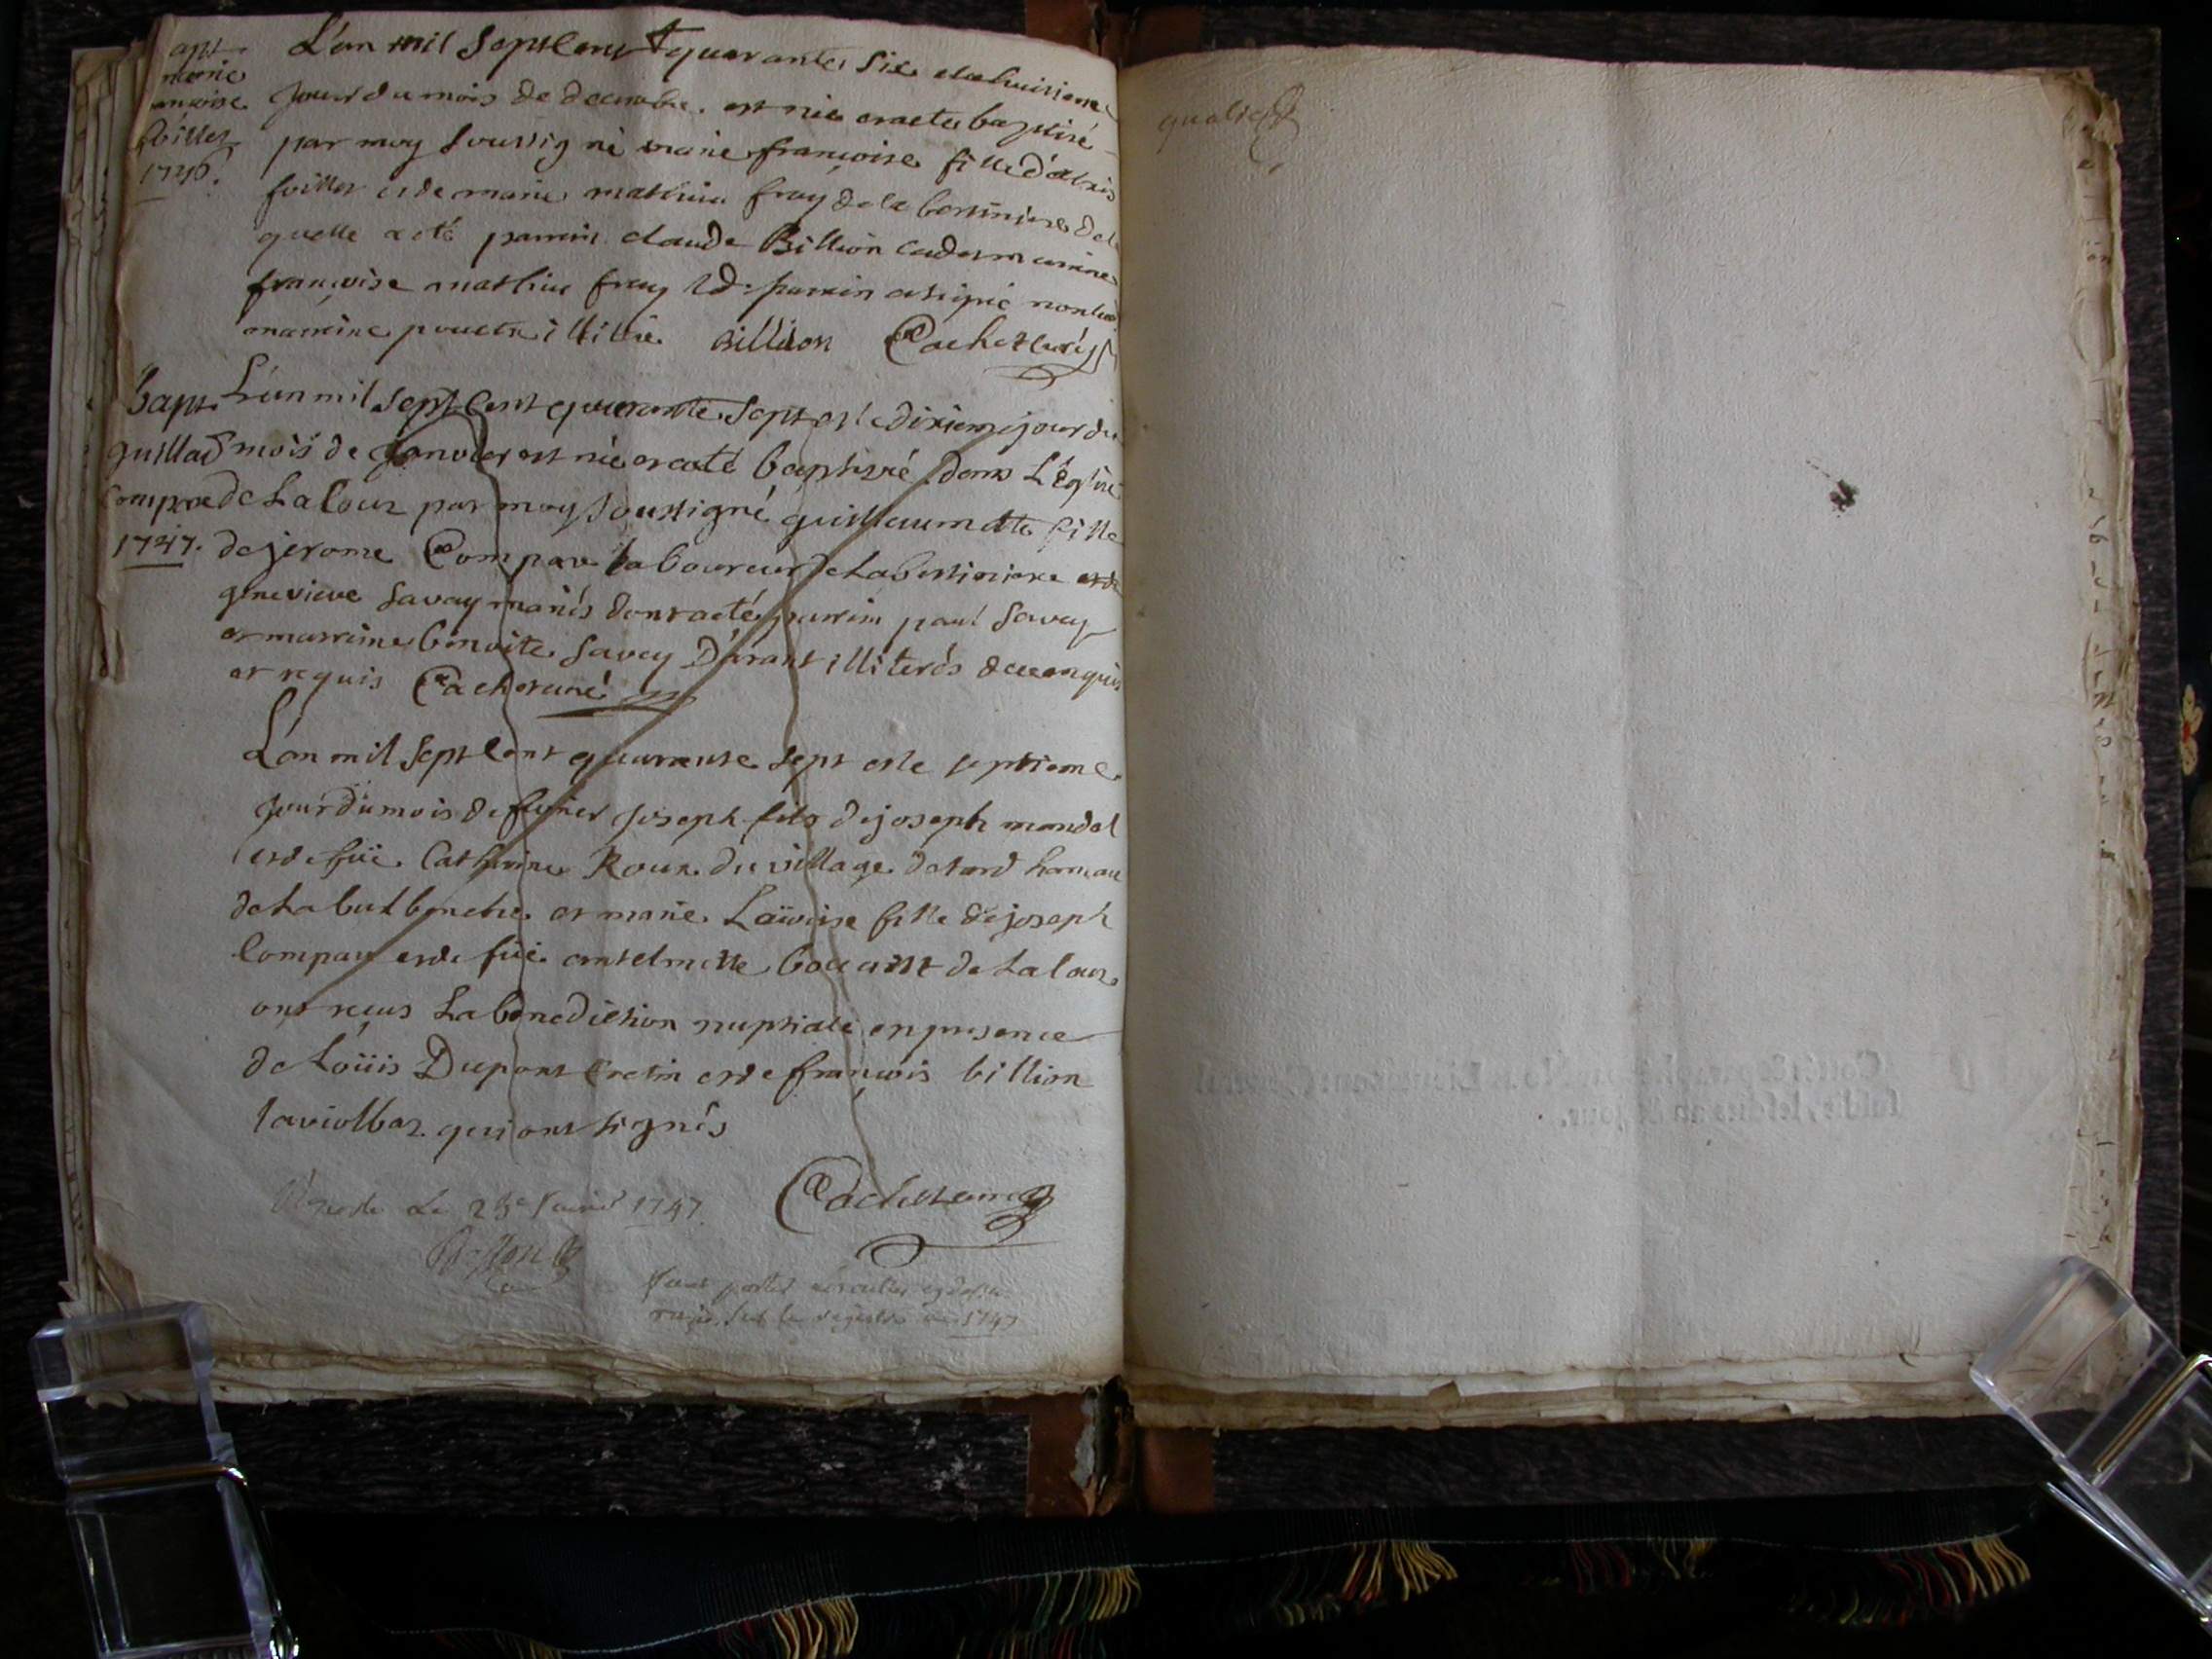 L'an mil sept cent quarante six et le huitieme
jour du mois de decembre est née et a eté baptisé
par moy soussigné marie françoise fille d'alexis
foillet et de marie mathieu fray de la bertiniere de la
quelle a eté parrin claude Billion cadet marrine
françoise mathieu fray le d. parrin a signé non la d.
marrine pour etre illiterée. Billion Cachet curé
marie
françoise
foillet
1746.
L'an mil sept cent quarante sept et le dixieme jour du
mois de janvier est née et a eté baptisée dans l'Eglise
de Lalouz par moy soussigné guillaumette fille
de jerome Compare laboureur de la bertiniere et de
genevieve Savey mariés dont a eté parrin paul Savey
et marrine benoite Savey Durant illiterés de ce enquis
et requis Cachet curé
bapt.
guillad
Compare
1747.
L'an mil sept cent quarante sept et le septieme
jour du mois de fevrier joseph fils de joseph mandel
et de füe Catherine Roux du village de hameau
de La but et marie Loüise fille de joseph
Compare et de füe antelmette de Lalouz
ont reçus La benediction nuptiale en presence
de Loüis Dupont Cretin et de françois billion
qui ont signés
Cachet curé
Le 23e 1747.
porter
sur le registre de 1747